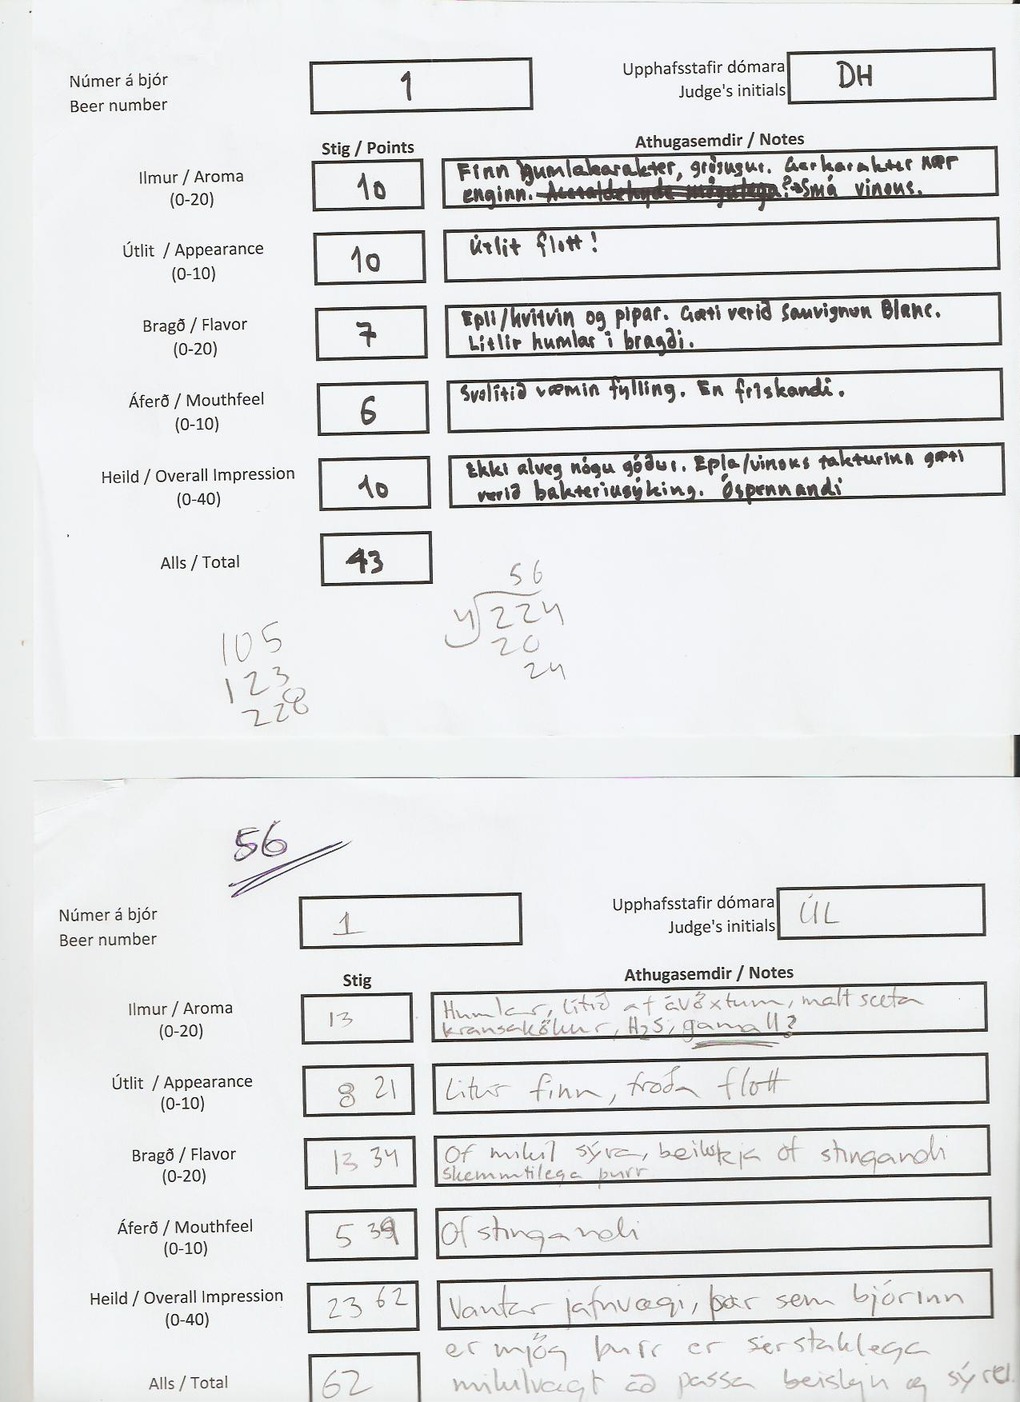 Númer á bjór
Beer number
1
Upphafsstafir dómara
Judge's initials
DH
Stig / Points
Athugasemdir / Notes
Ilmur / Aroma
(0-20)
10
Finn humlakarakter, grösugur. Gerkarakter nær
enginn. Acetaldehyde mögulega? Smá vinous.
Útlit / Appearance
(0-10)
10
Útlit flott!
Bragð / Flavor
(0-20)
7
Epli/hvítvín og pipar. Gæti verið Sauvignon Blanc.
Litlir humlar í bragði.
Áferð / Mouthfeel
(0-10)
6
Svolítið væmin fylling. En frískandi.
Heild / Overall Impression
(0-40)
10
Ekki alveg nógu góður. Epla/vinous takturinn gæti
verið bakteríusýking. Óspennandi
Alls / Total
43
56
4 224
20
24
105
123
228
56
Númer á bjór
Beer number
1
Upphafsstafir dómara
Judge's initials
ÚL
Stig
Athugasemdir / Notes
Ilmur / Aroma
(0-20)
13
Humlar, lítið af ávöxtum, malt sæta
kransakökur, H2S, gamall?
Útlit / Appearance
(0-10)
8 21
Litur fínn, froða flott
Bragð / Flavor
(0-20)
13 34
Of mikil sýra, beiskja of stingandi
skemmtilega þurr
Áferð / Mouthfeel
(0-10)
5 39
Of stingandi
Heild / Overall Impression
(0-40)
23 62
Vantar jafnvægi, þar sem bjórinn
er mjög þurr er sérstaklega
mikilvægt að passa beiskju og sýru.
Alls / Total
62